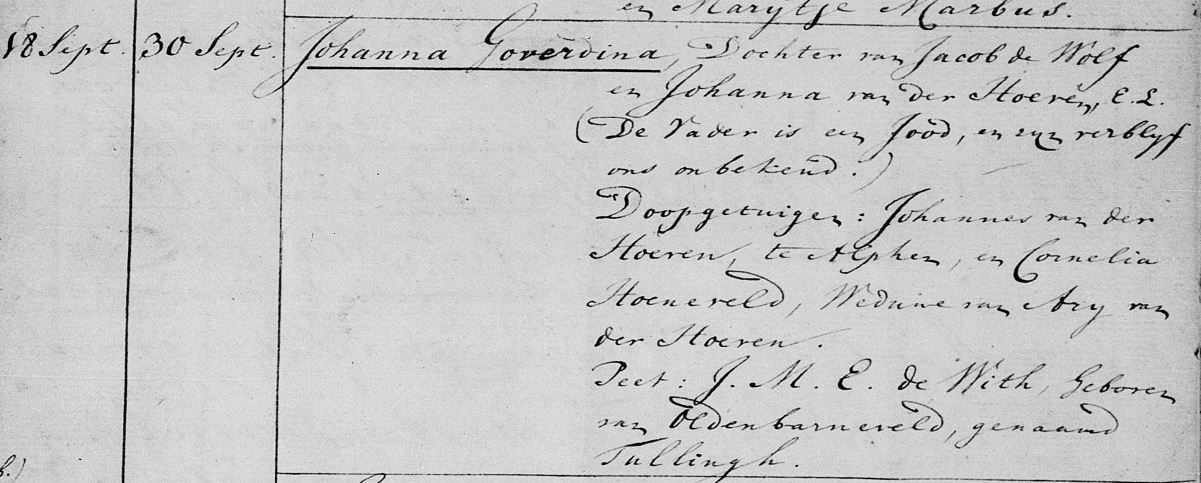 en Marytje Marbus.
18 Sept. 30 Sept. Johanna Goverdina, Dochter van Jacob de Wolf
en Johanna van der Hoeven, E. L.
(De Vader is een Jood, en zyn verblyf
ons onbekend.)
Doopgetuigen: Johannes van der
Hoeven, te Alphen, en Cornelia
Hoeneveld, Weduwe van Ary van
der Hoeven.
Peet: J. M. E. de With, Geboren
van Oldenbarneveld, genaamd
Tullingh.